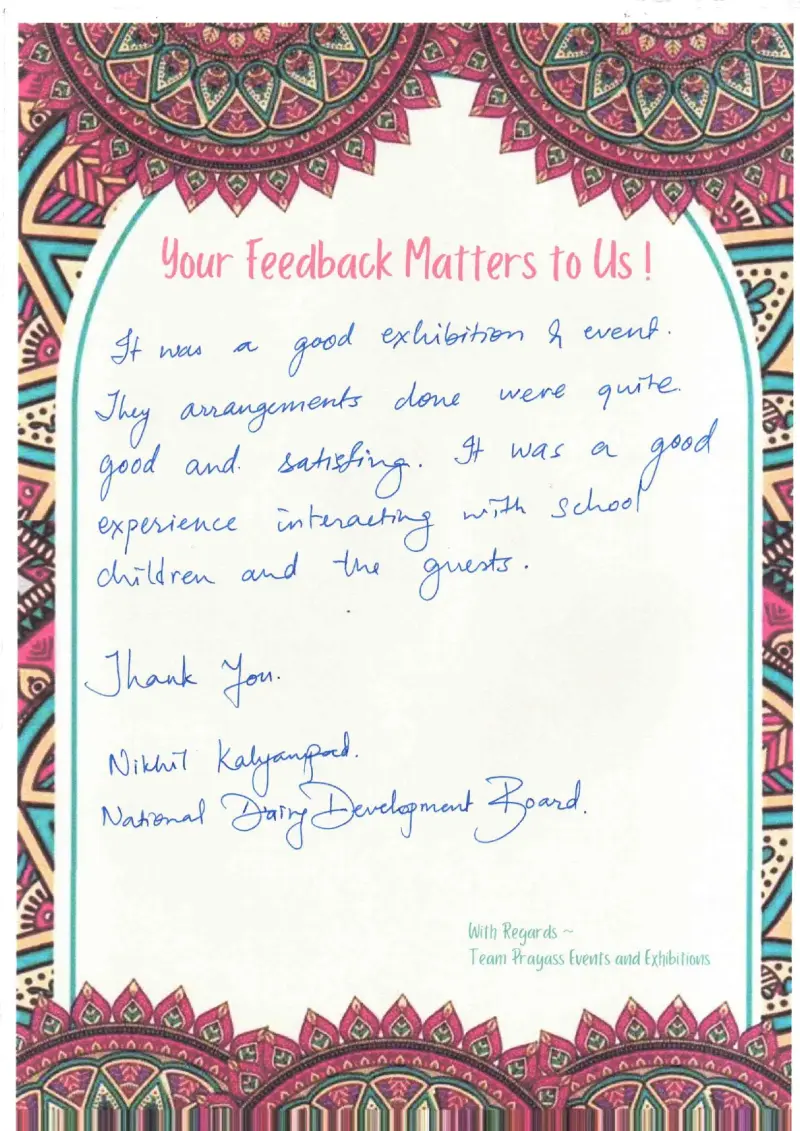 Your Feedback Matters to Us !
It was a good exhibition & event.
They arrangements done were quite.
good and. satisfing. It was a good
experience interacting with school
children and the guests.
Thank You.
Nikhil
National Dairy Development Board.
With Regards ~
Team Prayass Events and Exhibitions